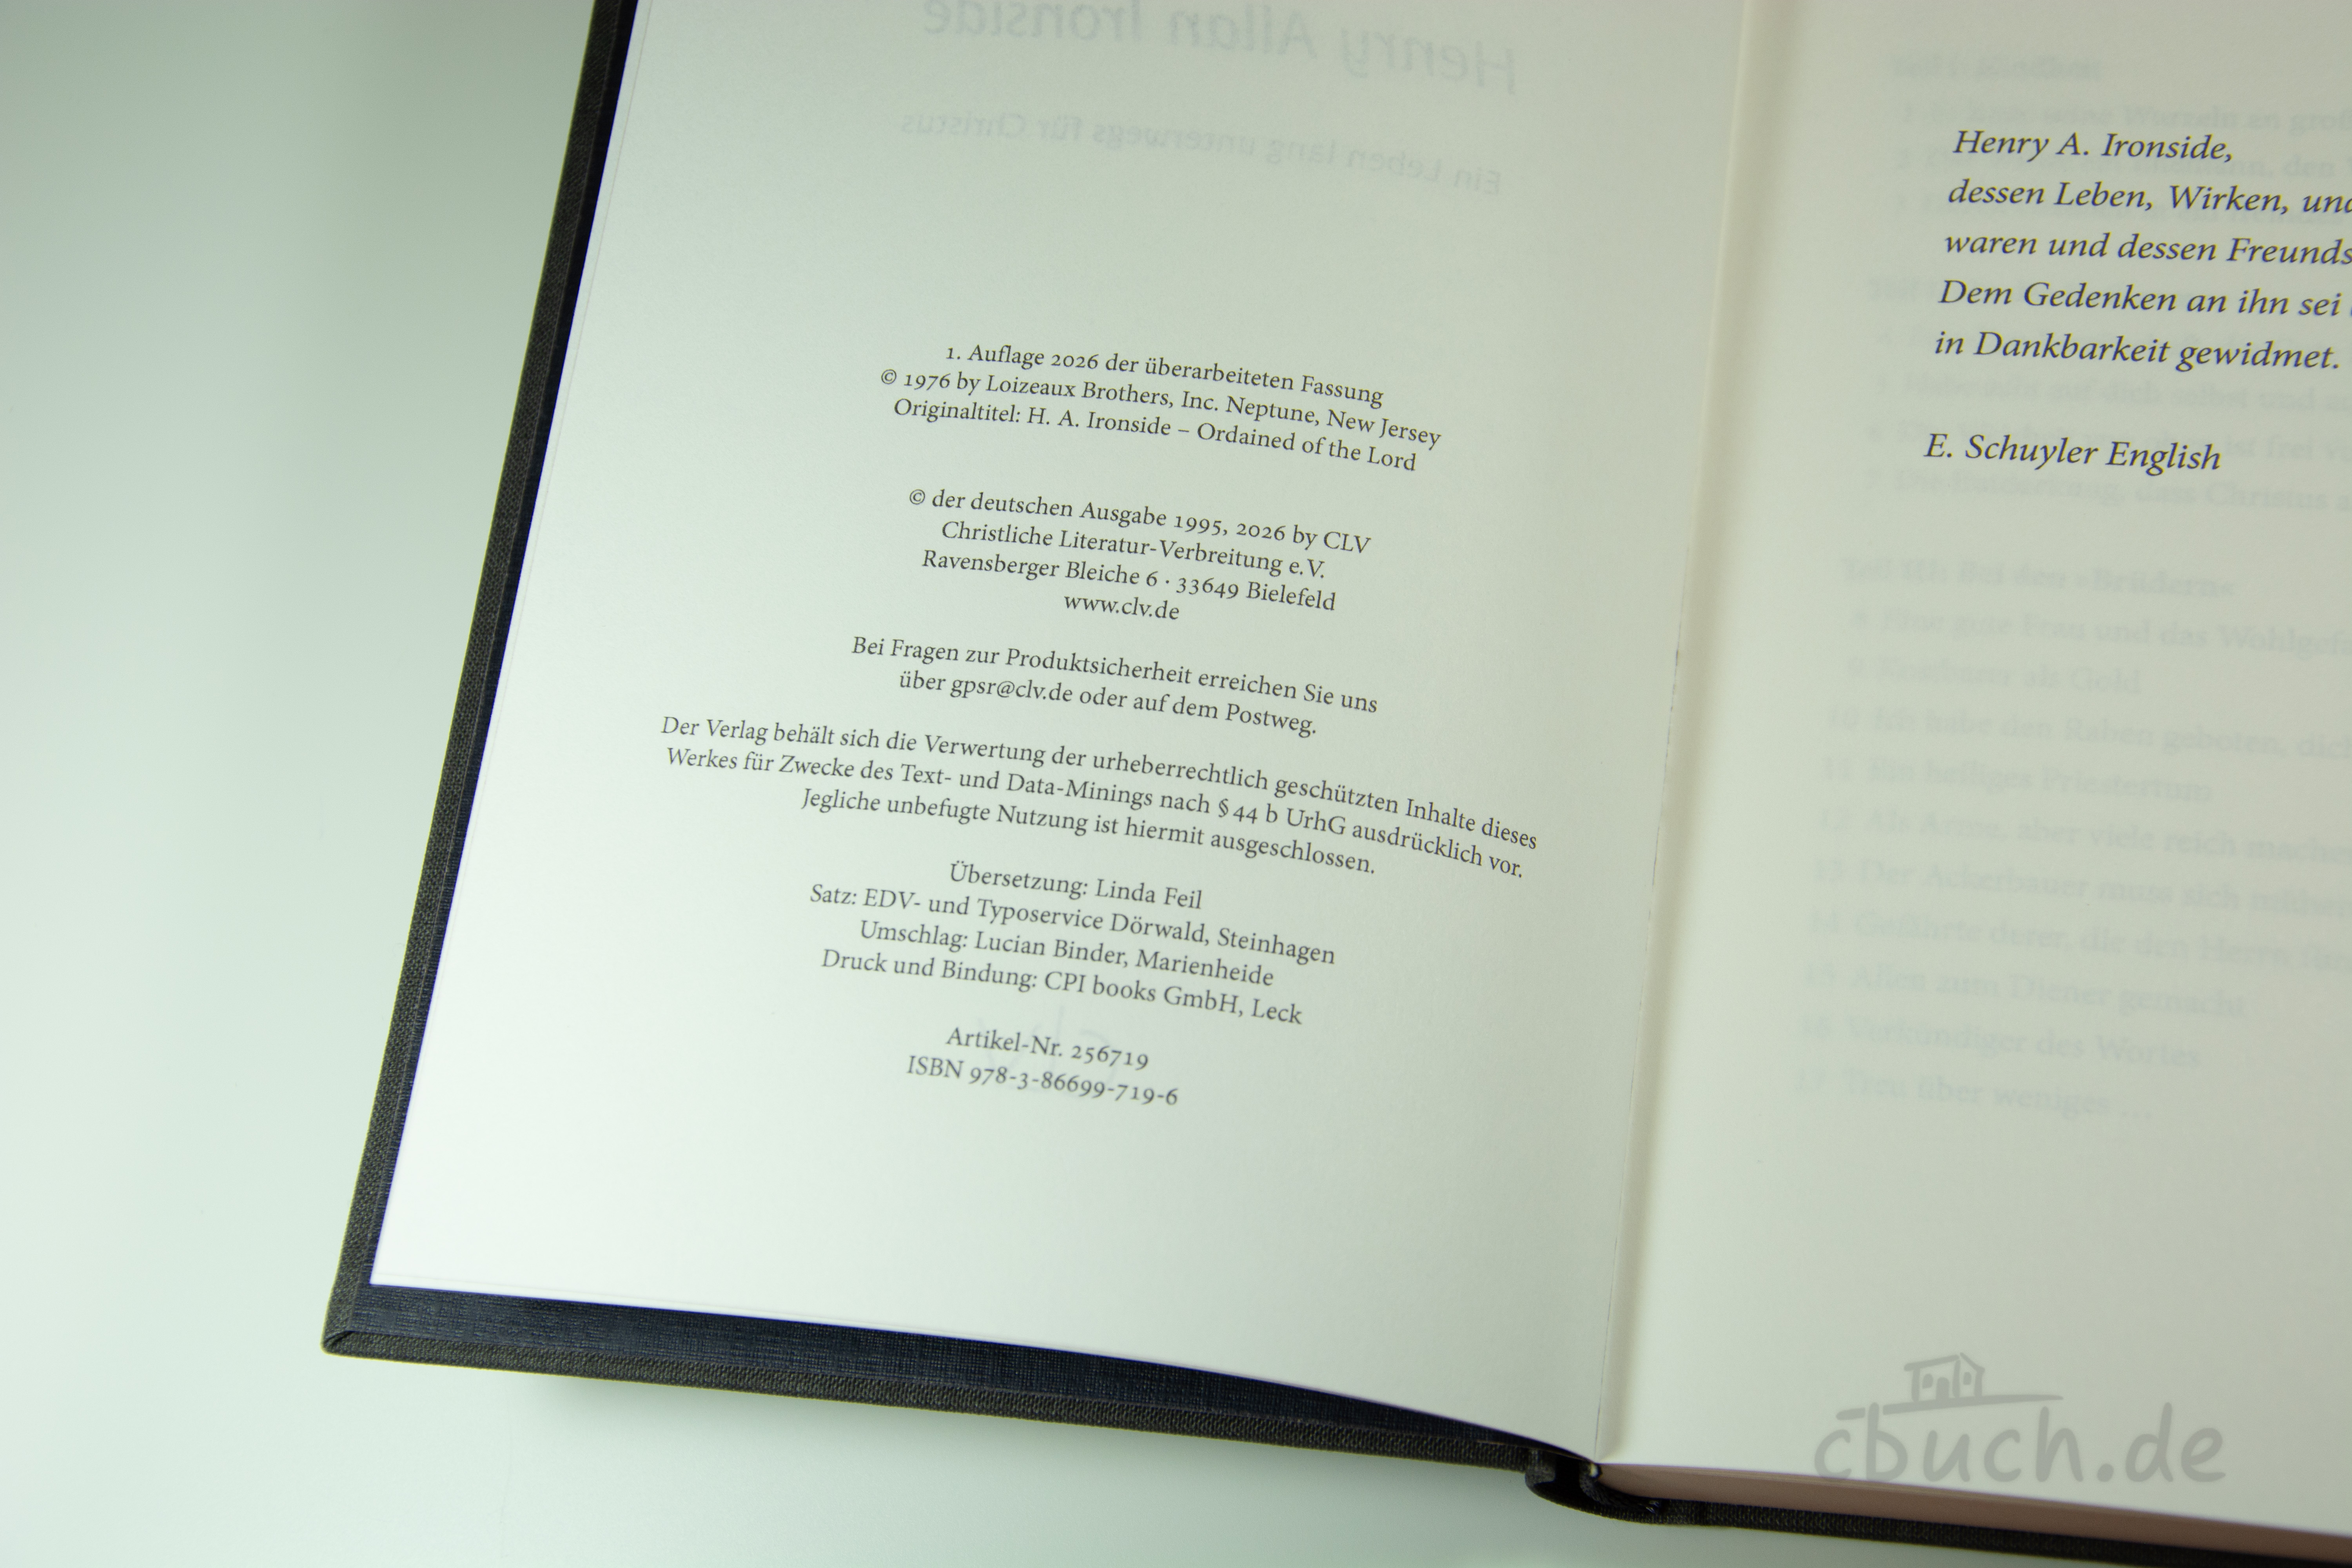 1. Auflage 2026 der überarbeiteten Fassung
© 1976 by Loizeaux Brothers, Inc. Neptune, New Jersey
Originaltitel: H. A. Ironside – Ordained of the Lord
© der deutschen Ausgabe 1995, 2026 by CLV
Christliche Literatur-Verbreitung e. V.
Ravensberger Bleiche 6 · 33649 Bielefeld
www.clv.de
Bei Fragen zur Produktsicherheit erreichen Sie uns
über gpsr@clv.de oder auf dem Postweg.
Der Verlag behält sich die Verwertung der urheberrechtlich geschützten Inhalte dieses
Werkes für Zwecke des Text- und Data-Minings nach § 44 b UrhG ausdrücklich vor.
Jegliche unbefugte Nutzung ist hiermit ausgeschlossen.
Übersetzung: Linda Feil
Satz: EDV- und Typoservice Dörwald, Steinhagen
Umschlag: Lucian Binder, Marienheide
Druck und Bindung: CPI books GmbH, Leck
Artikel-Nr. 256719
ISBN 978-3-86699-719-6
Henry A. Ironside,
dessen Leben, Wirken, und
waren und dessen Freunds
Dem Gedenken an ihn sei
in Dankbarkeit gewidmet.
E. Schuyler English
cbuch.de